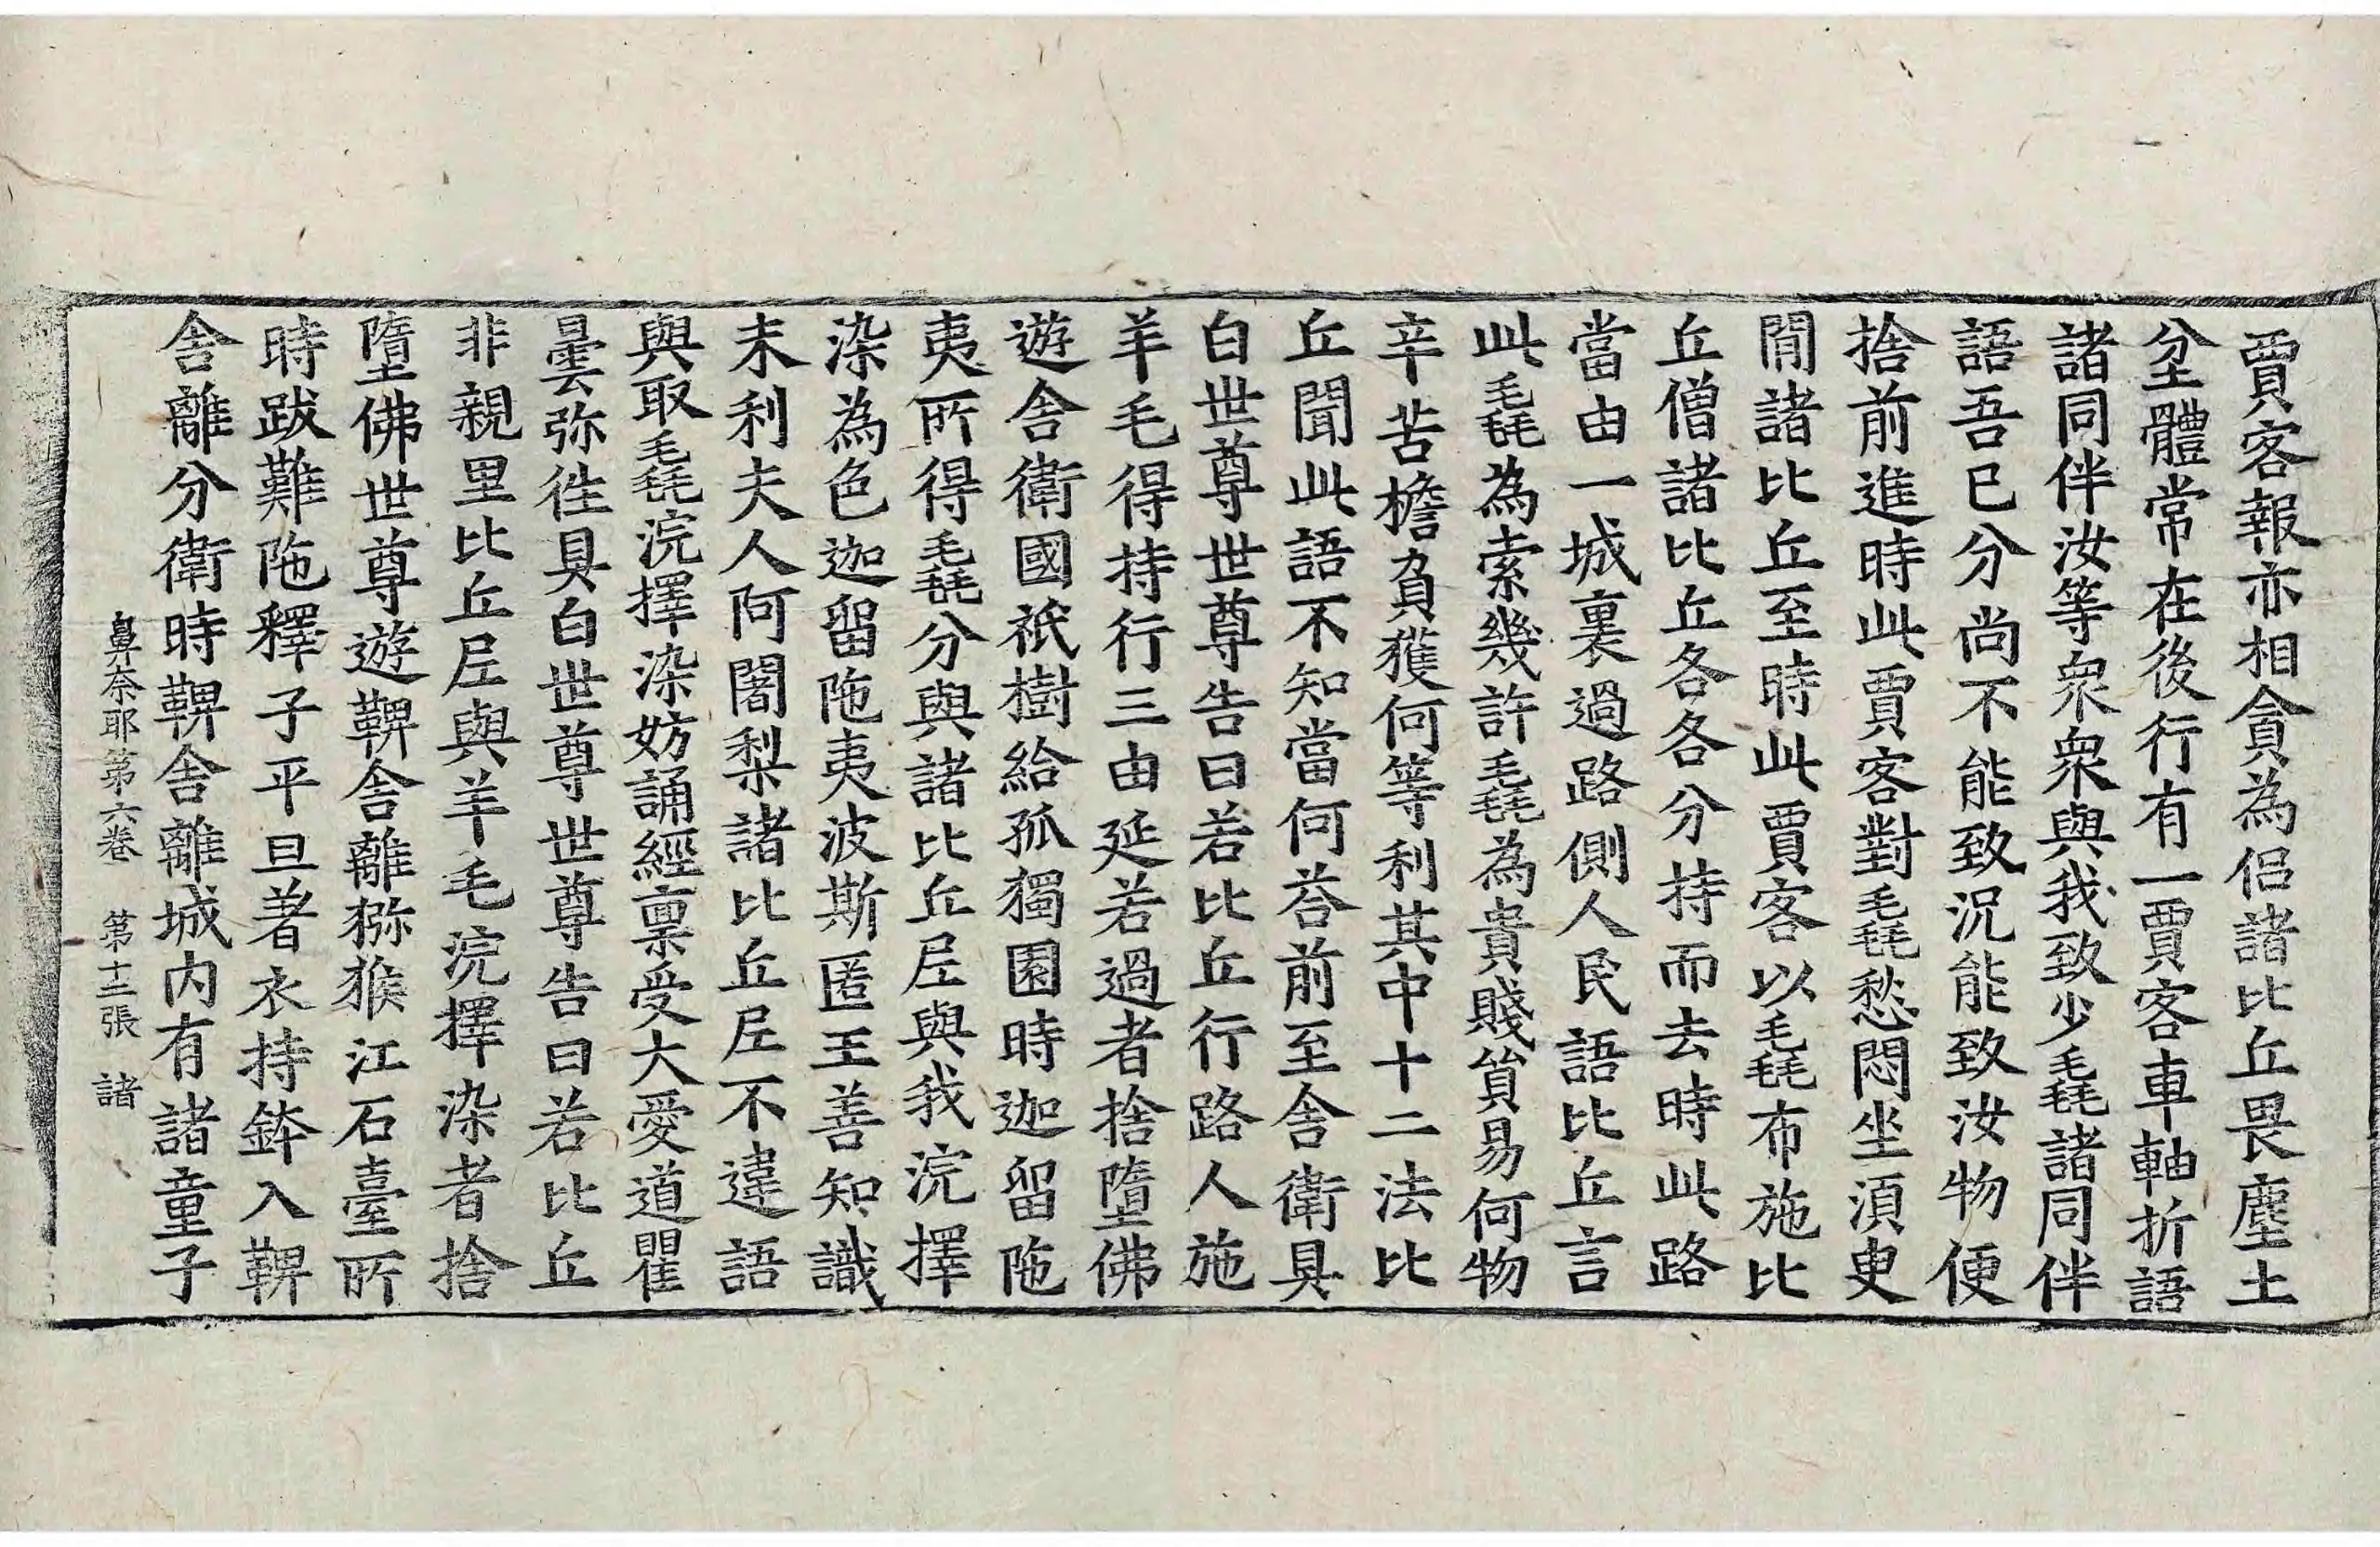 賈客報亦相貪為侶諸比丘畏塵土
坌體常在後行有一賈客車軸折語
諸同伴汝等衆衆與我致少毳諸同伴
語吾已分尚不能致況能致汝物便
捨前進時此賈客對毳愁悶坐須臾
閒諸比丘至時此賈客以毳布施比
丘僧諸比丘各各分持而去時此路
當由一城裏過路側人民語比丘言
此毳為索幾許毳為貴賤貿易何物
辛苦檐負獲何等利其中十二法比
丘聞此語不知當何荅前至舍衛具
白世尊世尊告曰若比丘行路人施
羊毛得持行三由延若過者捨墮佛
遊舍衛國祇樹給孤獨園時迦留陁
夷所得毳分與諸比丘尼與我浣擇
染為色迦留陁夷波斯匿王善知識
末利夫人阿闍梨諸比丘尼不違語
與取毳浣擇染妨誦經禀受大愛道瞿
曇弥徃具白世尊世尊告曰若比丘
非親里比丘尼與羊毛浣擇染者捨
墮佛世尊遊鞞舍離獼猴江石臺所
時跋難陁釋子平旦著衣持鉢入鞞
舍離分衛時鞞舍離城内有諸童子
鼻奈耶第六卷　第十三張　諸